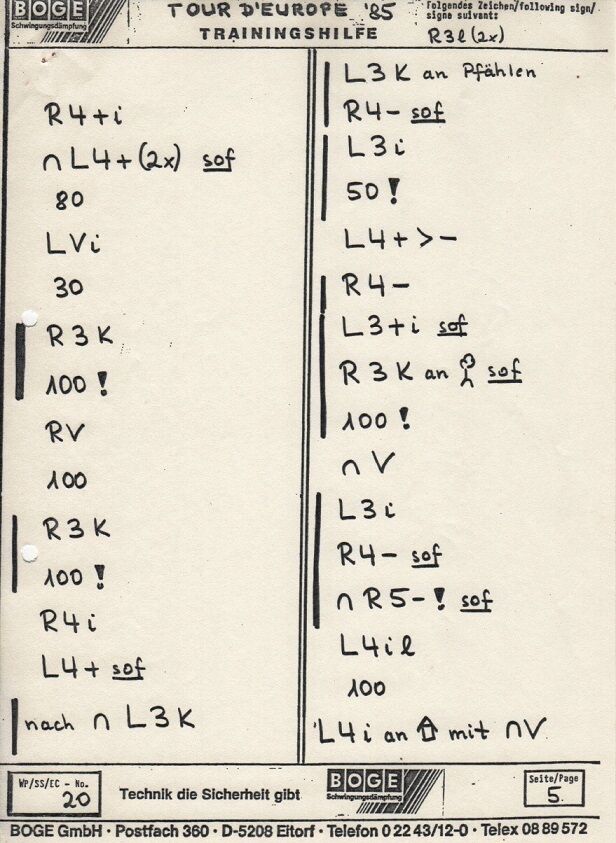 BOGE
Schwingungsdämpfung
TOUR D'EUROPE '85
TRAININGSHILFE
folgendes Zeichen/following sign/
signe suivant:
R3l(2x)
R4+i
∩L4+(2x) sof
80
LVi
30
R3K
100!
RV
100
R3K
100!
R4i
L4+ sof
nach ∩ L3K
L3K an Pfählen
R4- sof
L3i
50!
L4+>-
R4-
L3+i sof
R3K an sof
100!
∩V
L3i
R4- sof
∩R5-! sof
L4il
100
L4i an ⇧ mit ∩V
WP/SS/EC - No.
20
Technik die Sicherheit gibt
BOGE
Schwingungsdämpfung
Seite/Page
5.
BOGE GmbH · Postfach 360 · D-5208 Eitorf · Telefon 0 22 43/12-0 · Telex 08 89 572